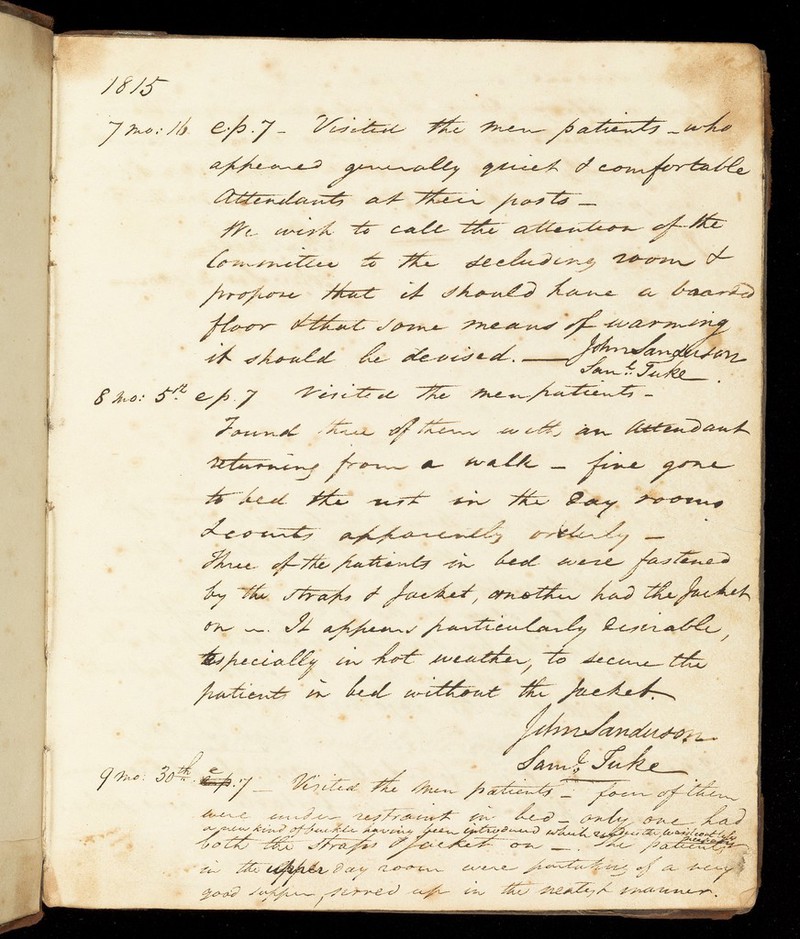 1815
7 mo: 16 e.p. 7 - Visited the men patients - who
appeared generally quiet & comfortable
Attendants at their posts -
We wish to call the attention of the
Committee to the secluding room &
propose that it should have a boarded
floor & that some means of warming
it should be devised. — John Sanderson
Saml. Tuke.
8 mo: 5th e p. 7 Visited the men patients -
Found three of them with an Attendant
returning from a walk - five gone
to bed the rest in the day rooms
& courts apparently orderly -
Three of the patients in bed were fastened
by the straps & Jacket, another had the Jacket
on -. It appears particularly desirable,
especially in hot weather, to secure the
patients in bed without the Jacket.
John Sanderson
Saml. Tuke
9 mo: 30th e.p. 7 - Visited the Men patients - four of them
were under restraint in bed - only one had
a new kind of buckle having been introduced which
both the straps & Jacket on -. The patients
in the upper day room were partaking of a very
good supper, served up in the neatest manner.